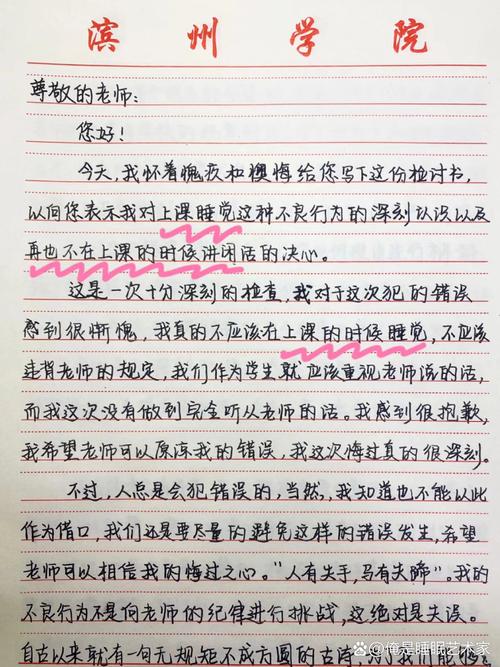 滨州学院
尊敬的老师:
您好!
今天,我怀着愧疚和懊悔给您写下这份检讨书,
以向您表示我对上课睡觉这种不良行为的深刻认识以及
再也不在上课的时候讲闲话的决心。
这是一次十分深刻的检查,我对于这次犯的错误
感到很惭愧,我真的不应该在上课的时候睡觉,不应该
违背老师的规定,我们作为学生就应该重视老师说的话,
而我这次没有做到完全听从老师的话。我感到很抱歉,
我希望老师可以原谅我的错误,我这次悔过真的很深刻。
不过,人总是会犯错误的,当然,我知道也不能以此
作为借口,我们还是要尽量的避免这样的错误发生,希望
老师可以相信我的悔过之心。"人有失手,马有失蹄"。我的
不良行为不是向老师的纪律进行挑战,这绝对是失误。
自古以来就有一句无规矩不成方圆的古
@俺是睡眠艺术家